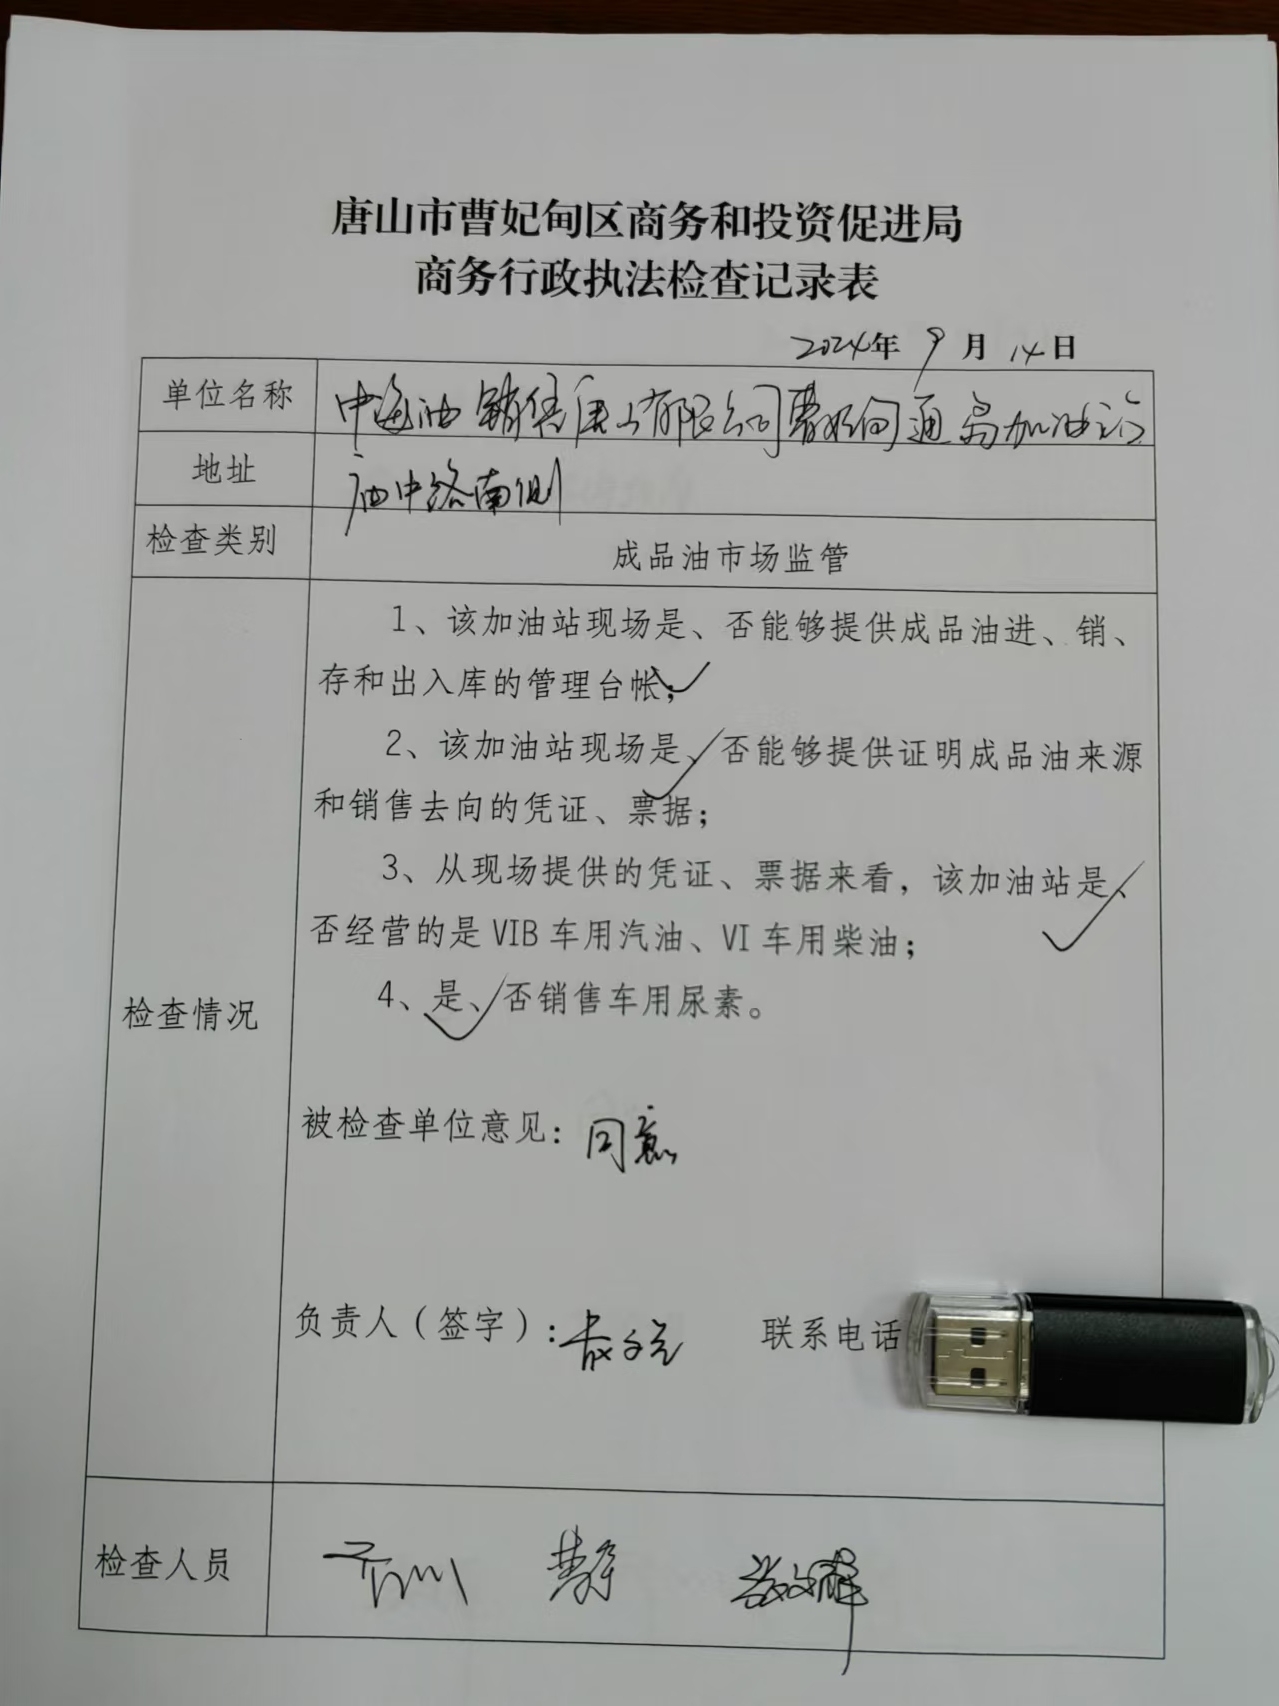 唐山市曹妃甸区商务和投资促进局
商务行政执法检查记录表
2024年 9月 14日
单位名称 中海油销售唐山有限公司曹妃甸通岛加油站
地址 油中路南侧
检查类别 成品油市场监管
1、该加油站现场是、否能够提供成品油进、销、
存和出入库的管理台帐；
2、该加油站现场是、否能够提供证明成品油来源
和销售去向的凭证、票据；
3、从现场提供的凭证、票据来看，该加油站是、
否经营的是 VIB 车用汽油、VI 车用柴油；
4、是、否销售车用尿素。
检查情况
被检查单位意见：同意
负责人（签字）： 联系电话
检查人员